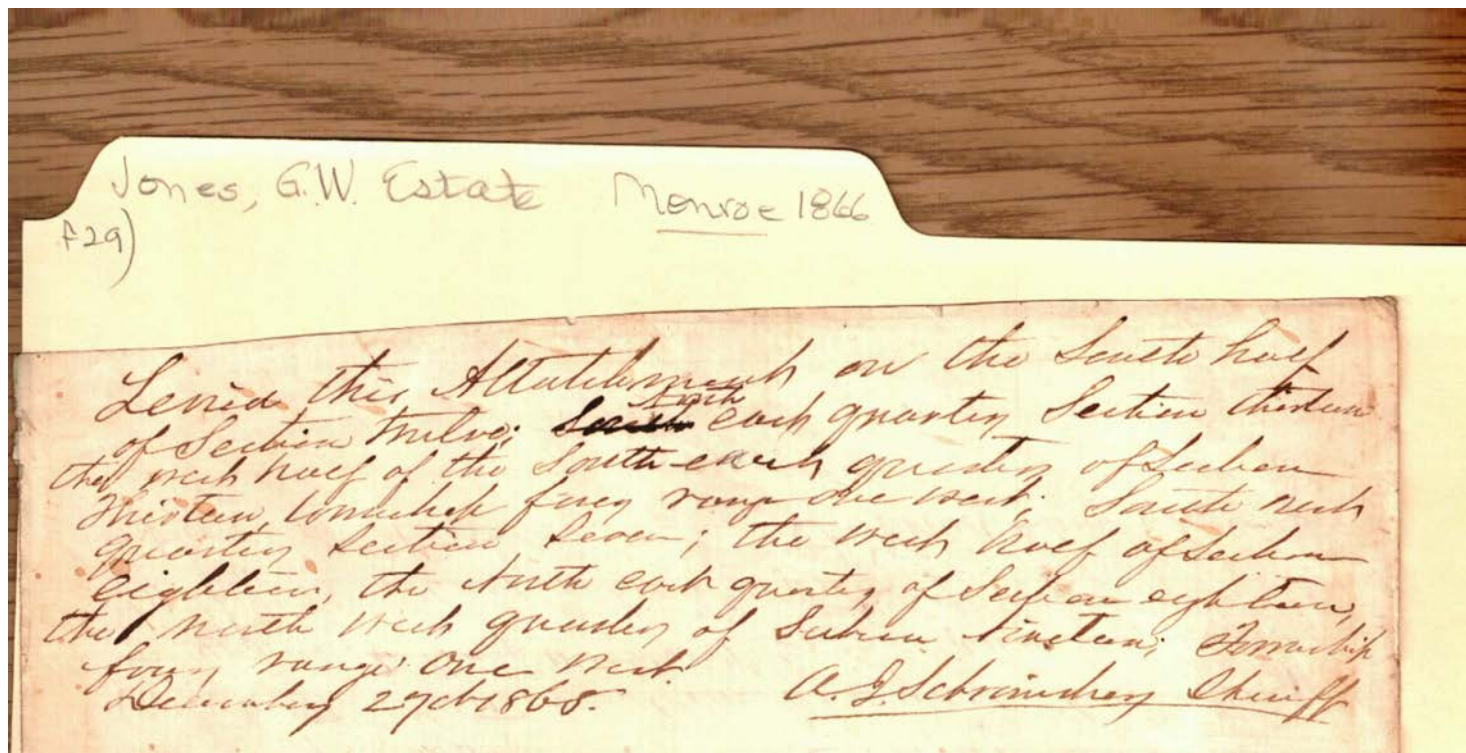 Jones, G.W. Estate Monroe 1866
f29)
Levied this Attatchment on the South half
of Section Twelve; North east quarter Section thirteen
the west half of the South east quarter of Section
Thirteen, Township four range one west; South west
quarter Section Seven; the west half of Section
eighteen, the North east quarter of Section eighteen,
the north west quarter of Section ninteen; Township
four, range one west.
December 27th 1865. Sheriff